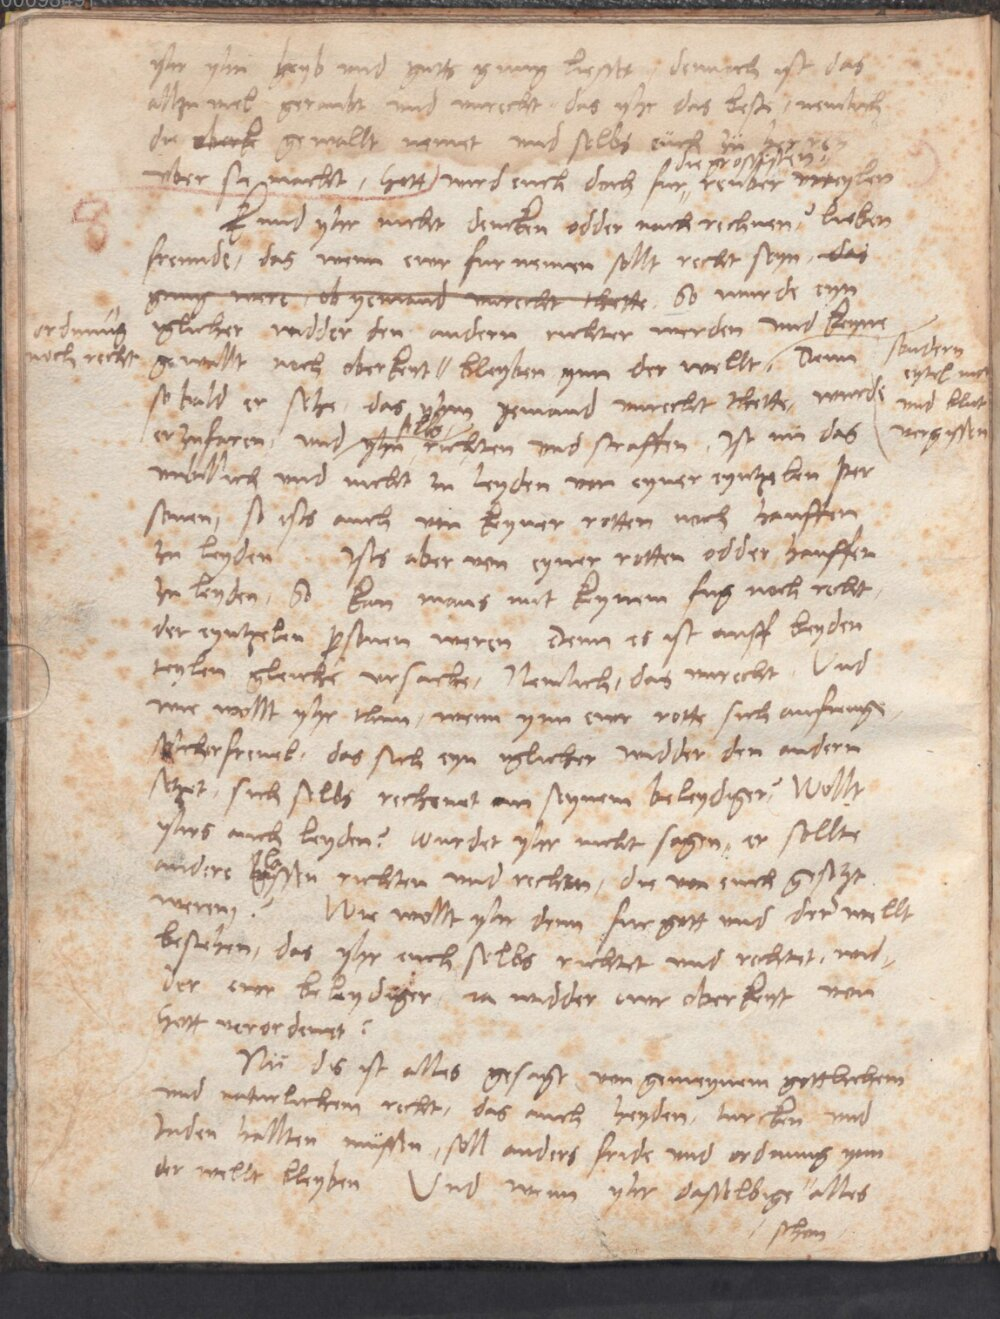 yhr yhn leyb und gutts gnug liesset, dennoch ist das
allzu viel geraubt und unrecht, das yhr das beste, nemlich
die oberke gewallt nemet und selbs euch zu herren
uber sie macht, Gott wird euch doch fur die grossisten reuber urteylen
Kund yhr nicht dencken odder noch rechnen? lieben
freunde, das wenn ewr furnemen sollt recht seyn, das
gnug were, ob yemand unrecht thette, So wurde eyn
iglicher widder den andern richter werden und keyne
gewallt noch oberkeyt bleyben ynn der wellt, Denn
ordnung
noch recht
sondern
eytel mord
und blut
vergissen
so bald er sehe, das yhm yemand unrecht thette, wurde
er zufaren, und yhn selbs richten und straffen. Ist nu das
unbillich und nicht zu leyden von eyner eyntzelen per
sonen, so ists auch von keyner rotten noch hauffen
zu leyden Ists aber von eyner rotten odder hauffen
zu leyden, So kan mans mit keynem fug noch recht
der eyntzelen personen weren Denn es ist auff beyden
teylen gleiche ursache, Nemlich, das unrecht. Und
wie wollt yhr thun, wenn ynn ewr rotte sich anfienge
solcher frevel, das sich eyn iglicher widder den andern
setzet, sich selbs rechenet an seynem beleydiger? Wollt
yhrs auch leyden? Wurdet yhr nicht sagen, er sollte
andere lassen richten und rechen, die von euch gesetzt
weren? Wie wollt yhr denn fur gott und der wellt
bestehen, das yhr euch selbs richtet und rechtet, wid-
der ewr beleydiger, ia widder ewr oberkeyt von
Gott verordenet?
Nu dis ist alles gesagt von gemeynem gottlichem
und naturlichem recht, das auch heyden, turcken und
Juden hallten müssen, soll anders fride und ordnung ynn
der wellt bleyben Und wenn yhr dasselbige alles
schon